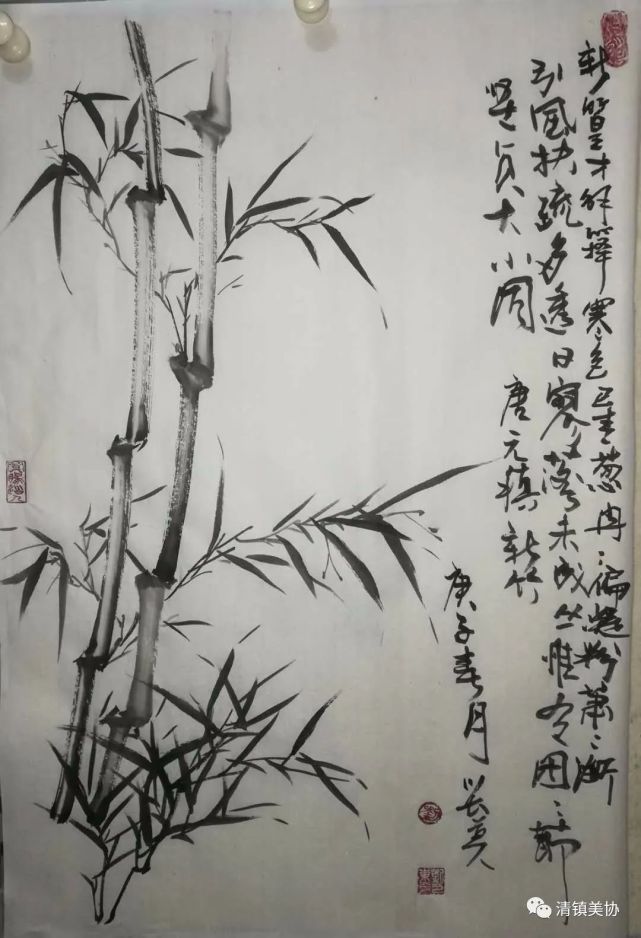 新篁才解箨寒色已青葱冉々偏凝粉萧々渐
引风扶疏多透日寥落未成丛惟有团々節
坚贞大小同 唐元稹新竹
庚子春月
清镇美协